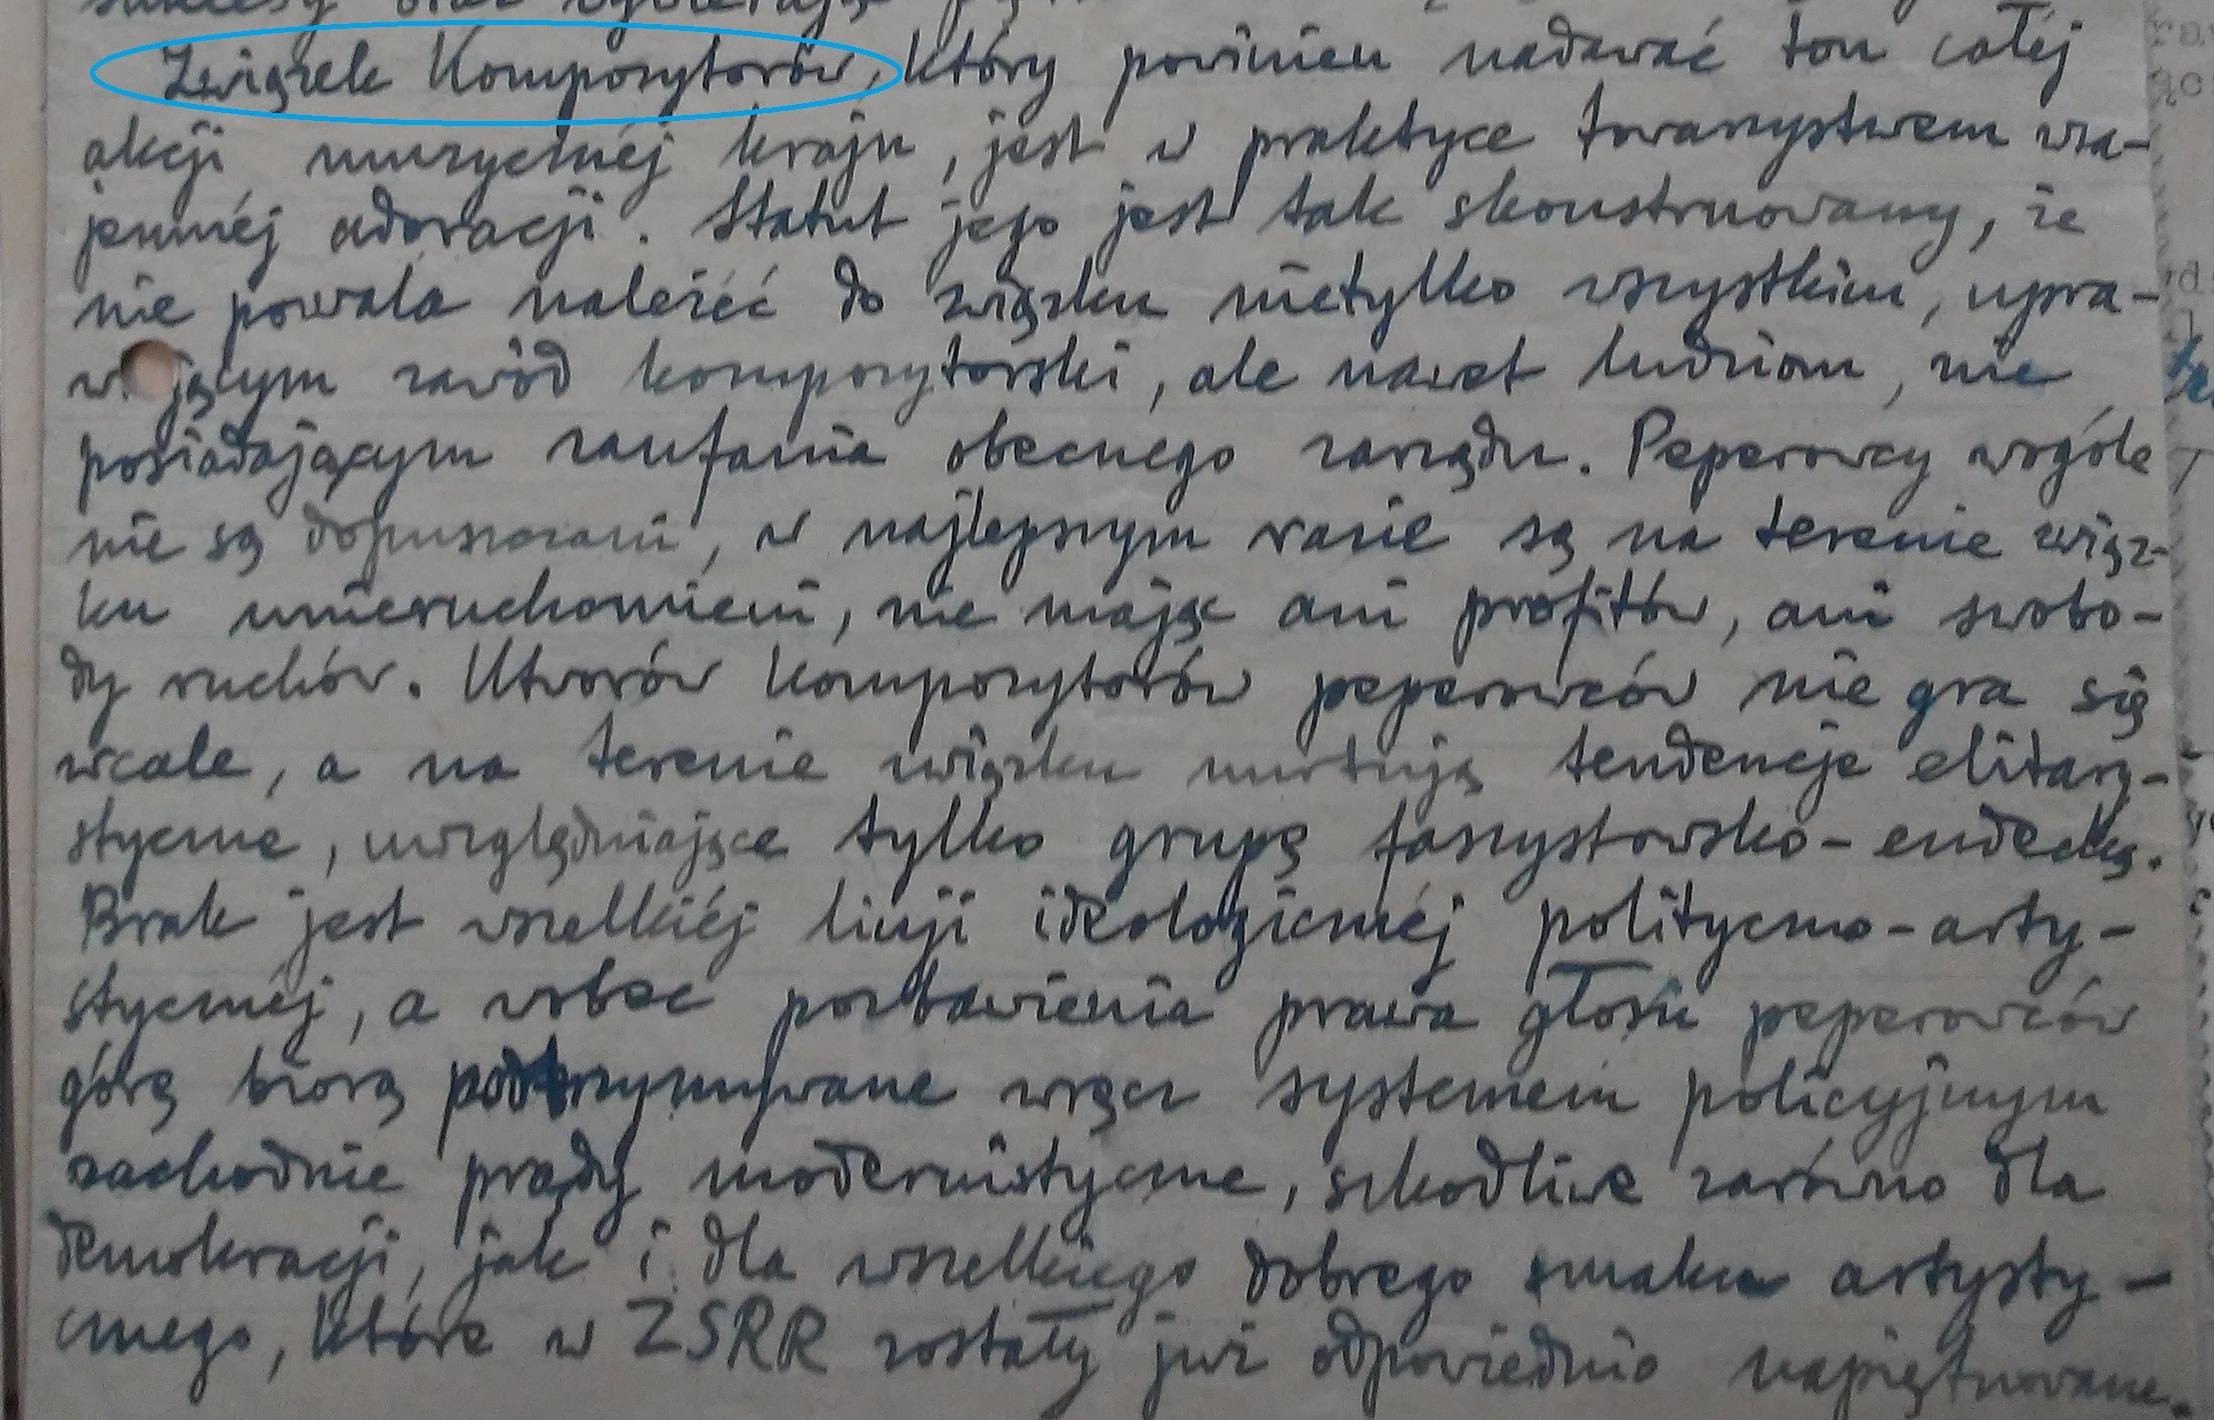 Związek Kompozytorów, który powinien nadawać ton całéj
akcji muzycznéj kraju, jest w praktyce towarzystwem wza-
jemnéj adoracji. Statut jego jest tak skonstruowany, że
nie pozwala należéć do związku nietylko wszystkim, upra-
wiającym zawód kompozytorski, ale nawet ludziom, nie
posiadającym zaufania obecnego zarządu. Peperowcy wogóle
nie są dopuszczani, w najlepszym razie są na terenie związ-
ku unieruchomieni, nie mając ani profitów, ani swobo-
dy ruchów. Utworów kompozytorów peperowców nie gra się
wcale, a na terenie związku nurtują tendencje elitary-
styczne, uwzględniające tylko grupę faszystowsko-endecką.
Brak jest wszelkiéj linji ideologicznéj polityczno-arty-
stycznéj, a wobec pozbawienia prawa głosu peperowców
górą biorą podtrzymywane wręcz systemem policyjnym
zachodnie prądy modernistyczne, szkodliwe zarówno dla
demokracji, jak i dla wszelkiego dobrego smaku artysty-
cznego, które w ZSRR zostały już odpowiednio napiętnowane.